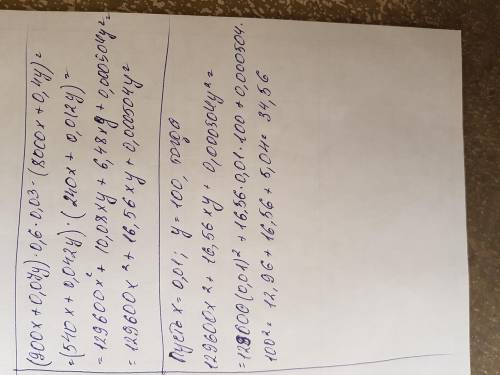 (900x+0,07y)·0,6·0,03·(8000x+0,4y)=
=(540x+0,042y)·(240x+0,012y)=
=129600x²+10,08xy+6,48xy+0,000504y²=
=129600x²+16,56xy+0,000504y²
Пусть x=0,01; y=100, тогда
129600x²+16,56xy+0,000504y²=
=129600(0,01)²+16,56·0,01·100+0,000504·
100²=12,96+16,56+5,04=34,56